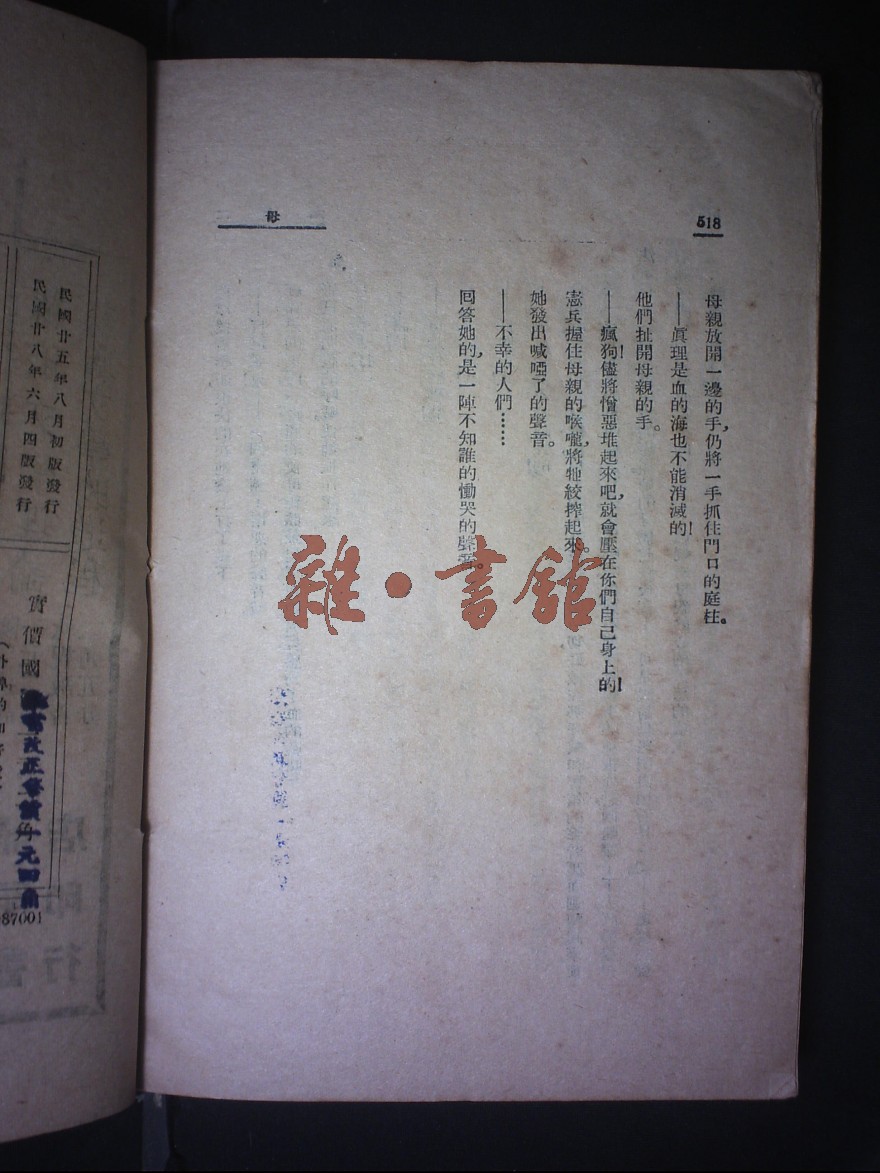 518
母
母親放開一邊的手,仍將一手抓住門口的庭柱。
——眞理是血的海也不能消滅的!
他們扯開母親的手。
——瘋狗!儘將憎惡堆起來吧,就會壓在你們自己身上的!
憲兵握住母親的喉嚨,將牠絞搾起來。
她發出喊啞了的聲音。
——不幸的人們……
回答她的,是一陣不知誰的慟哭的聲音。
雜·書館
民國廿五年八月初版發行
民國廿八年六月四版發行
實價國
改正
元四角
87001
行